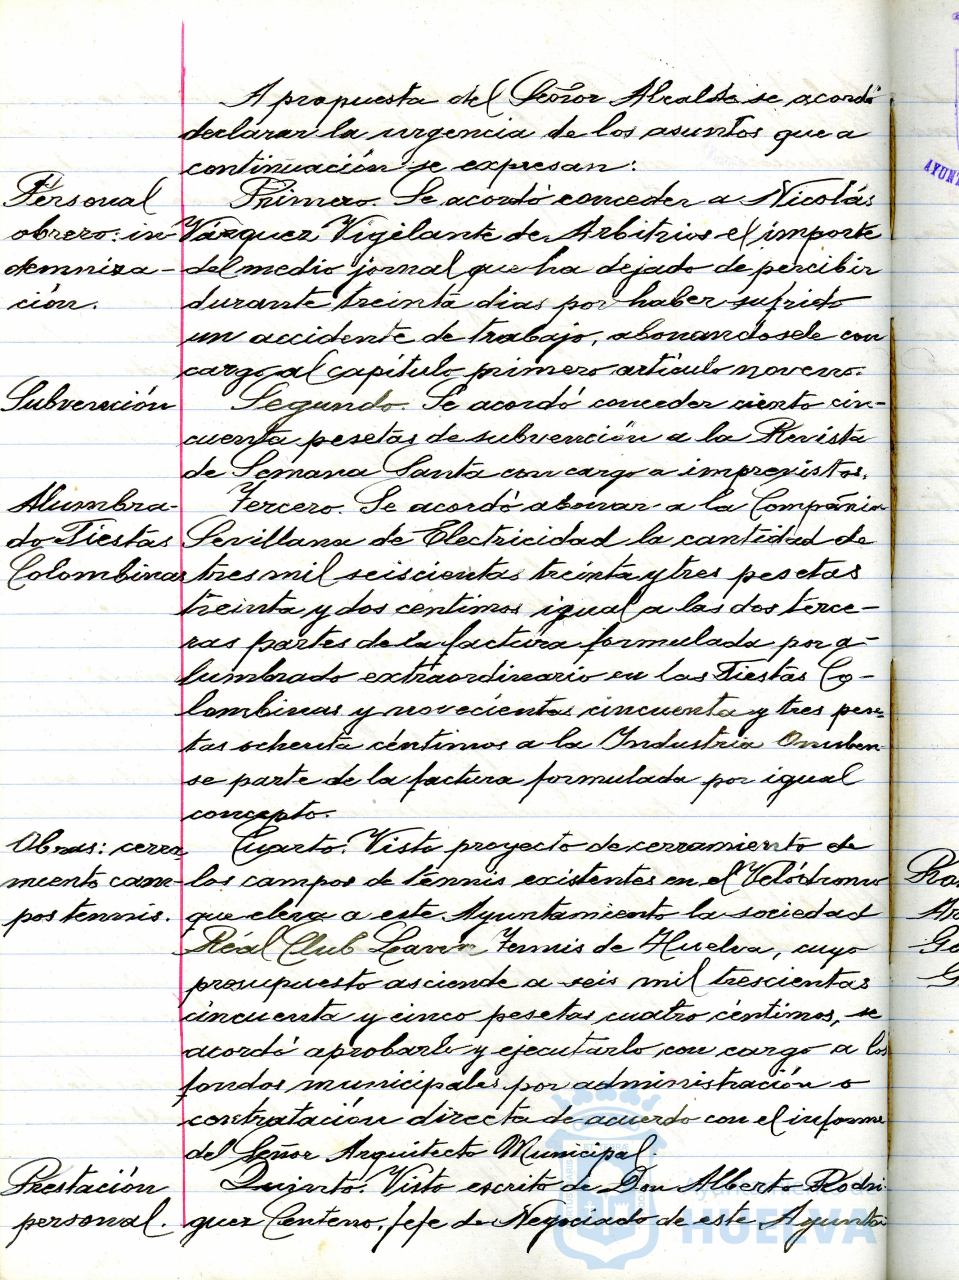 A propuesta del Señor Alcalde se acordó
declarar la urgencia de los asuntos que a
continuación se expresan:
Personal
obrero: in-
demniza-
ción.
Primero. Se acordó conceder a Nicolás
Vázquez Vigilante de Arbitrios el importe
del medio jornal que ha dejado de percibir
durante treinta dias por haber sufrido
un accidente de trabajo, abonandosele con
cargo al capítulo primero artículo noveno.
Subvención
Segundo. Se acordó conceder ciento cin-
cuenta pesetas de subvención a la Revista
de Semana Santa con cargo a imprevistos.
Alumbra-
do Fiestas
Colombinas
Tercero. Se acordó abonar a la Compañia
Sevillana de Electricidad la cantidad de
tres mil seiscientas treinta y tres pesetas
treinta y dos centimos igual a las dos terce-
ras partes de la factura formulada por a-
lumbrado extraordinario en las Fiestas Co-
lombinas y novecientas cincuenta y tres pese-
tas ochenta céntimos a la Industria Onuben-
se parte de la factura formulada por igual
concepto.
Obras: cerra-
miento cam-
pos tennis.
Cuarto. Visto proyecto de cerramiento de
los campos de tennis existentes en el Velódromo
que eleva a este Ayuntamiento la sociedad
Real Club Lawn Tennis de Huelva, cuyo
presupuesto asciende a seis mil trescientas
cincuenta y cinco pesetas cuatro céntimos, se
acordó aprobarlo y ejecutarlo con cargo a los
fondos municipales por administración o
contratación directa de acuerdo con el informe
del Señor Arquitecto Municipal.
Prestación
personal.
Quinto. Visto escrito de Don Alberto Rodri-
guez Centeno, Jefe de Negociado de este Ayunta-
HUELVA